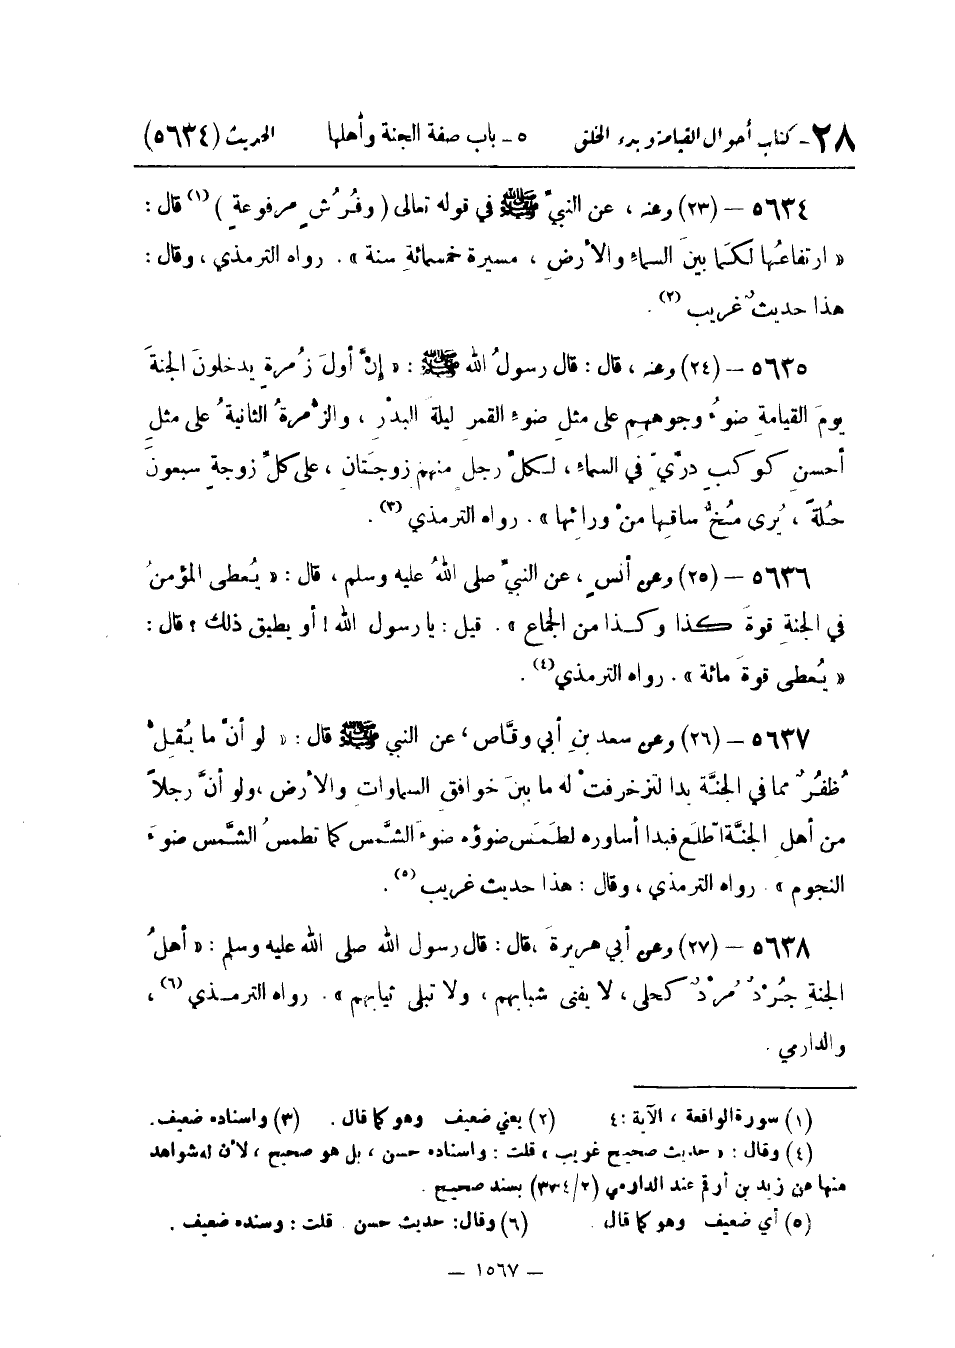 ٢٨ - كتاب أحوال القيامة وبدء الخلق ٥ - باب صفة الجنة وأهلها الحديث (٥٦٣٤)
٥٦٣٤ - (٢٣) وعنه ، عن النبيّ ﷺ في قوله تعالى ( وفُرُشٍ مرفوعةٍ ) (١) قال :
« ارتفاعُها لكَما بينَ السماءِ والأرضِ ، مسيرة خمسمائةِ سنة » . رواه الترمذي ، وقال :
هذا حديثٌ غريب (٢) .
٥٦٣٥ - (٢٤) وعنه ، قال : قال رسولُ الله ﷺ : « إنَّ أولَ زُمرةٍ يدخلونَ الجنةَ
يومَ القيامةِ ضوءُ وجوههم على مثلِ ضوءِ القمرِ ليلةَ البدْرِ ، والزُّمرةُ الثانيةُ على مثلِ
أحسنِ كوكبٍ درّيّ في السماءِ ، لكلِّ رجلٍ منهم زوجَتانِ ، على كلِّ زوجةٍ سبعونَ
حُلةً ، يُرى مُخُّ ساقِها منْ ورائِها » . رواه الترمذي (٣) .
٥٦٣٦ - (٢٥) وعن أنسٍ ، عن النبيّ صلى اللهُ عليه وسلم ، قال : « يُعطى المؤمنُ
في الجنةِ قوةَ كذا وكذا من الجماع » . قيل : يا رسول الله ! أو يطيق ذلك ؟ قال :
« يُعطى قوةَ مائة » . رواه الترمذي (٤) .
٥٦٣٧ - (٢٦) وعن سعد بنِ أبي وقَّاص ، عن النبي ﷺ قال : « لو أنَّ ما يُقِلُّ
ظُفُرٌ مما في الجنَّة بدا لتزخرفتْ له ما بينَ خوافقِ السماواتِ والأرض ، ولو أنَّ رجلاً
من أهلِ الجنَّة اطّلَع فبدا أساوره لطَمَس ضوؤه ضوءَ الشَّمس كما تطمسُ الشَّمس ضوءَ
النجوم » . رواه الترمذي ، وقال : هذا حديث غريب (٥) .
٥٦٣٨ - (٢٧) وعن أبي هريرةَ ، قال : قال رسول الله صلى الله عليه وسلم : « أهلُ
الجنةِ جُرْدٌ مُرْدٌ كحلى ، لا يفنى شبابهم ، ولا تبلى ثيابهم » . رواه الترمذي (٦) ،
والدارمي .
(١) سورة الواقعة ، الآية : ٤ (٢) يعني ضعيف وهو كما قال . (٣) وإسناده ضعيف .
(٤) وقال : « حديث صحيح غريب » قلت : وإسناده حسن ، بل هو صحيح ، لأن له شواهد
منها عن زيد بن أرقم عند الدارمي (٢/٣٣٤) بسند صحيح .
(٥) أي ضعيف وهو كما قال . (٦) وقال : حديث حسن . قلت : وسنده ضعيف .
— ١٥٦٧ —